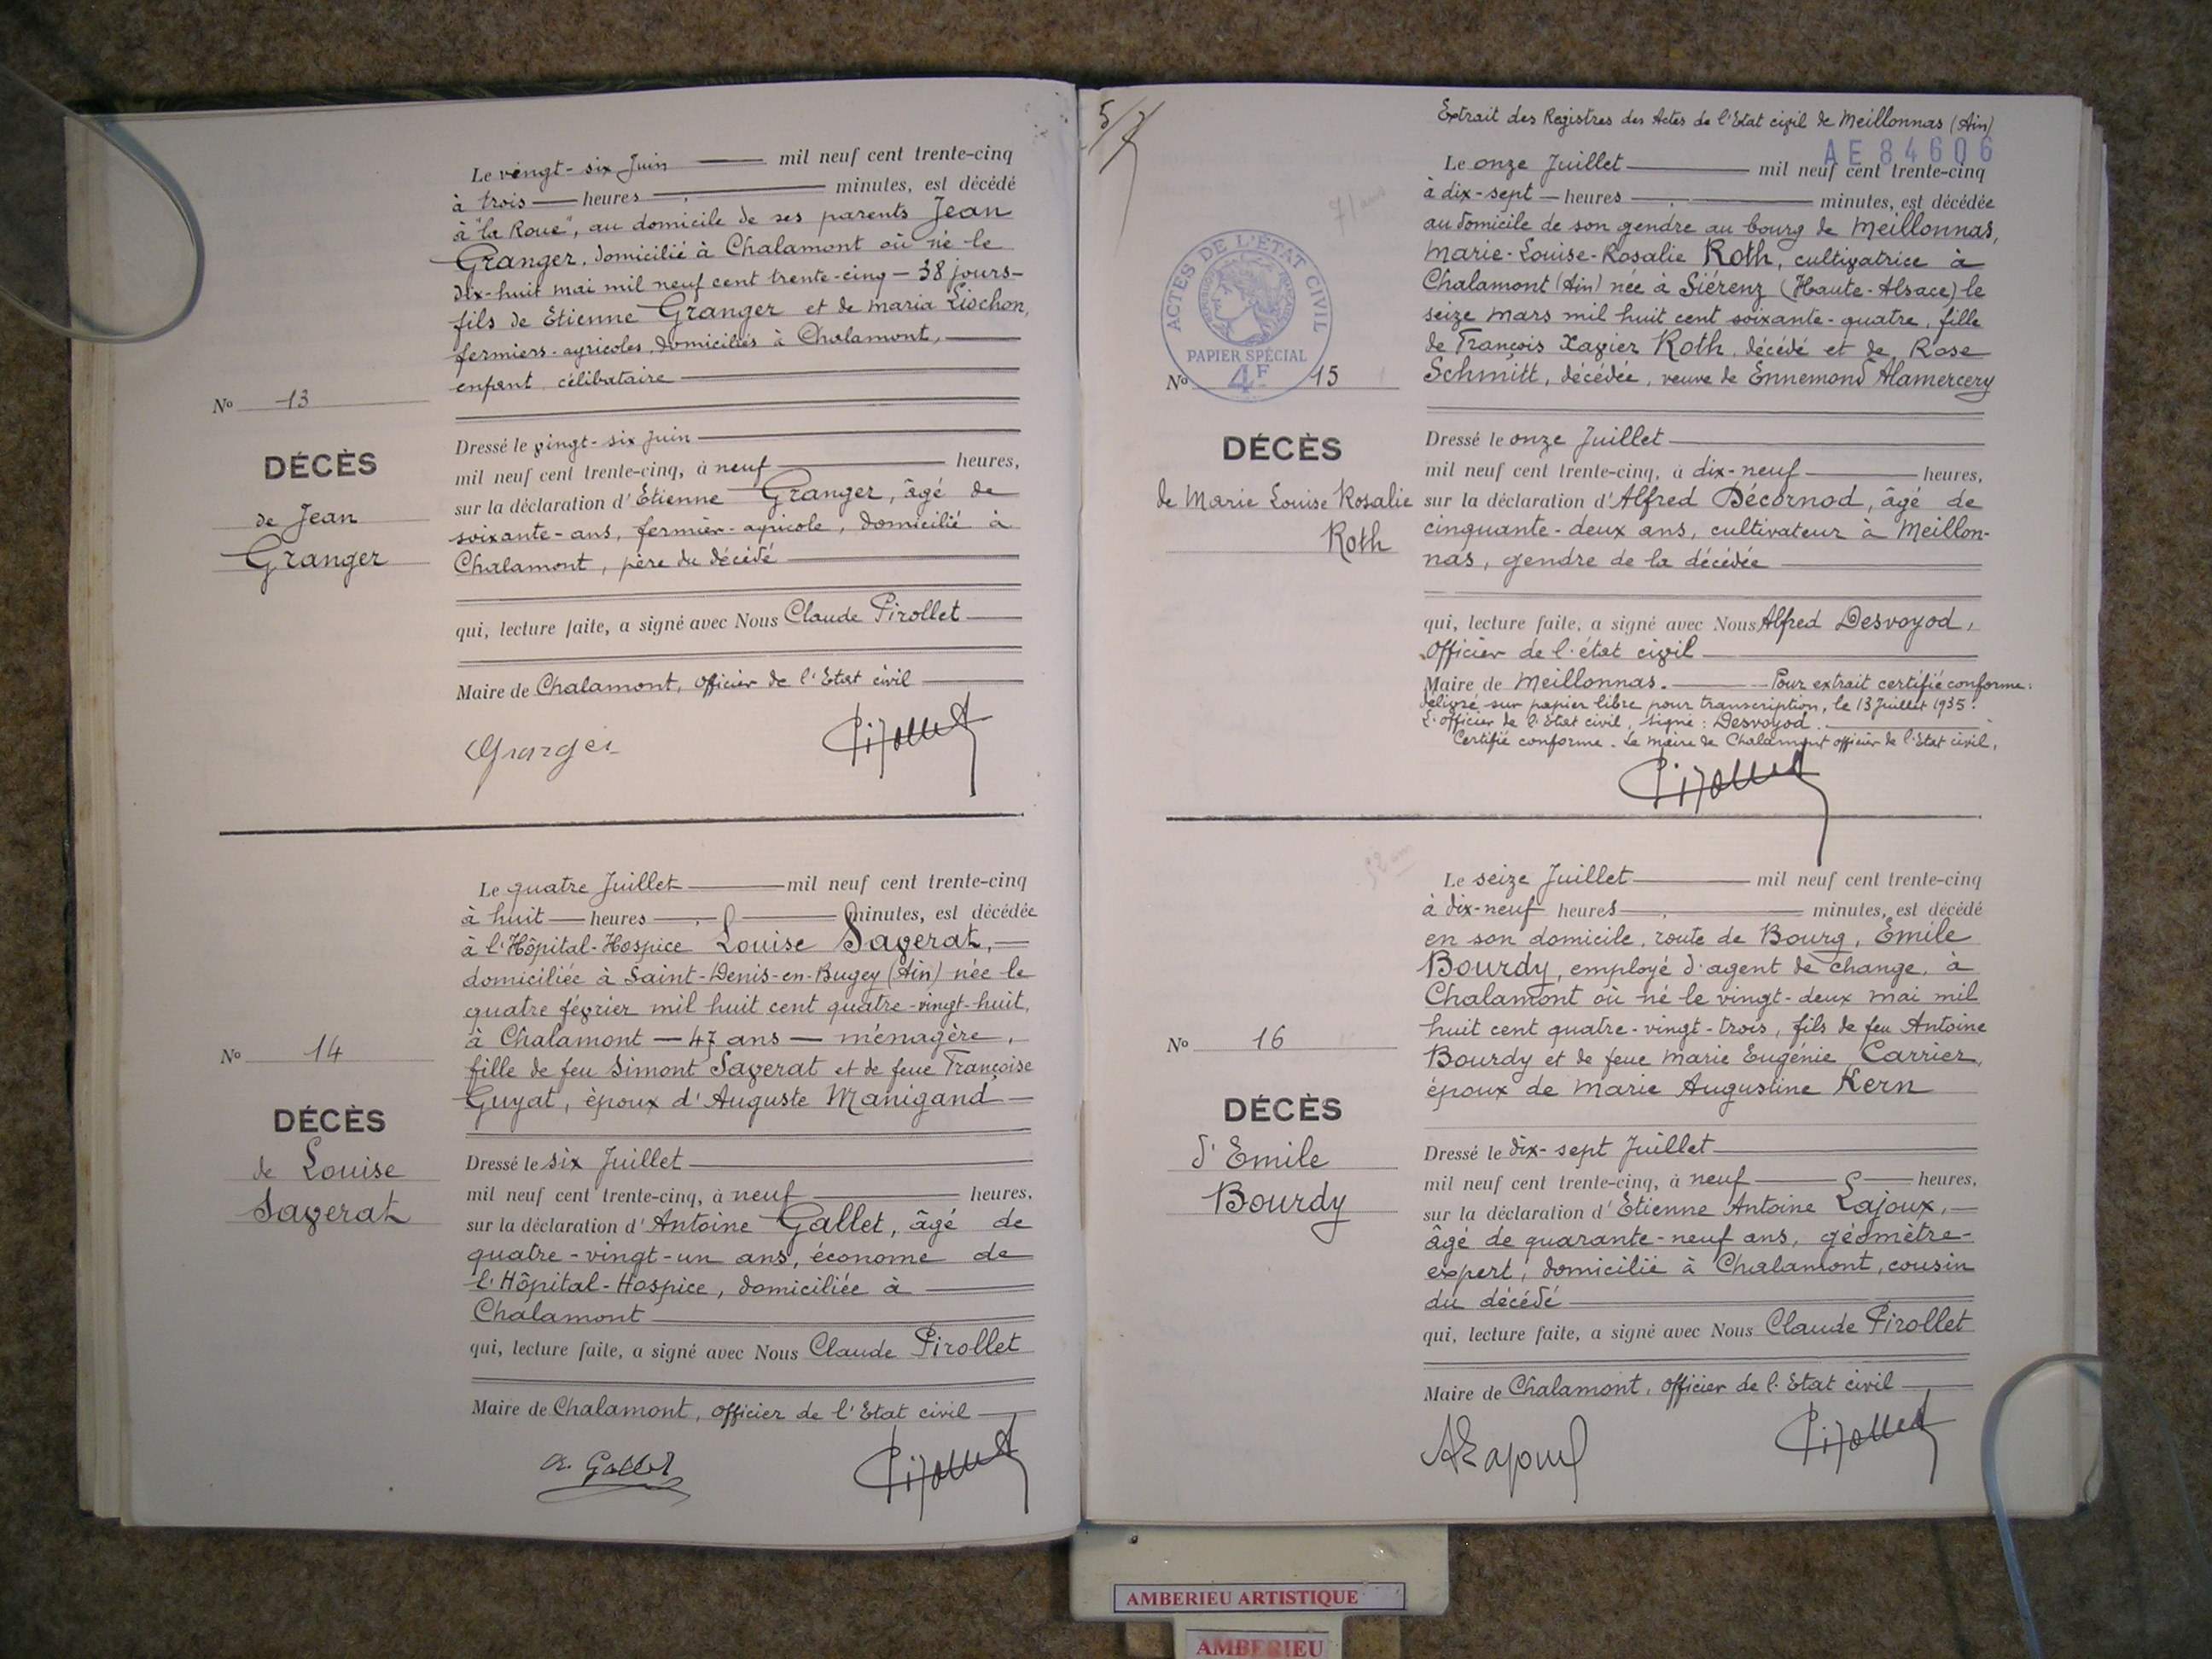 Le vingt-six Juin mil neuf cent trente-cinq
à trois heures minutes, est décédé
à "la Roue", au domicile de ses parents Jean
Granger, domicilié à Chalamont où né le
dix-huit mai mil neuf cent trente-cinq - 38 jours -
fils de Etienne Granger et de Maria Liochon,
fermiers-agricoles, domiciliés à Chalamont,
enfant célibataire
No 13
DÉCÈS
de Jean
Granger
Dressé le vingt-six Juin
mil neuf cent trente-cinq, à neuf heures,
sur la déclaration d'Etienne Granger, âgé de
soixante-ans, fermier-agricole, domicilié à
Chalamont, père du décédé
qui, lecture faite, a signé avec Nous Claude Pirollet
Maire de Chalamont, officier de l'Etat civil
Granger Pirollet
Le quatre Juillet mil neuf cent trente-cinq
à huit heures minutes, est décédée
à l'Hôpital-Hospice Louise Sagerat,
domiciliée à Saint-Denis-en-Bugey (Ain) née le
quatre février mil huit cent quatre-vingt-huit,
à Chalamont - 47 ans - ménagère,
fille de feu Simont Sagerat et de feue Françoise
Guyat, époux d'Auguste Manigand
No 14
DÉCÈS
de Louise
Sagerat
Dressé le six Juillet
mil neuf cent trente-cinq, à neuf heures,
sur la déclaration d'Antoine Gallet, âgé de
quatre-vingt-un ans, économe de
l'Hôpital-Hospice, domiciliée à
Chalamont
qui, lecture faite, a signé avec Nous Claude Pirollet
Maire de Chalamont, officier de l'Etat civil
A. Gallet Pirollet
5/7
Extrait des Registres des Actes de l'Etat civil de Meillonnas (Ain)
AE 84606
Le onze Juillet mil neuf cent trente-cinq
71 ans
à dix-sept heures minutes, est décédée
au domicile de son gendre au bourg de Meillonnas,
Marie-Louise-Rosalie Roth, cultivatrice à
Chalamont (Ain) née à Siérenz (Haute-Alsace) le
seize mars mil huit cent soixante-quatre, fille
de François Xavier Roth, décédé et de Rose
Schmitt, décédée, veuve de Ennemond Alamercery
ACTES DE L'ÉTAT CIVIL
PAPIER SPÉCIAL
4F
No 15
DÉCÈS
de Marie Louise Rosalie
Roth
Dressé le onze Juillet
mil neuf cent trente-cinq, à dix-neuf heures,
sur la déclaration d'Alfred Décornod, âgé de
cinquante-deux ans, cultivateur à Meillon-
nas, gendre de la décédée
qui, lecture faite, a signé avec Nous Alfred Desvoyod,
Officier de l'état civil
Maire de Meillonnas. Pour extrait certifié conforme:
délivré sur papier libre pour transcription, le 13 Juillet 1935.
L'officier de l'Etat civil, signé: Desvoyod.
Certifié conforme. Le maire de Chalamont officier de l'Etat civil,
Pirollet
52 ans
Le seize Juillet mil neuf cent trente-cinq
à dix-neuf heures minutes, est décédé
en son domicile, route de Bourg, Emile
Bourdy, employé d'agent de change, à
Chalamont où né le vingt-deux mai mil
huit cent quatre-vingt-trois, fils de feu Antoine
Bourdy et de feue Marie Eugénie Carrier,
époux de Marie Augustine Kern
No 16
DÉCÈS
d'Emile
Bourdy
Dressé le dix-sept Juillet
mil neuf cent trente-cinq, à neuf heures,
sur la déclaration d'Etienne Antoine Lajoux,
âgé de quarante-neuf ans, géomètre-
expert, domicilié à Chalamont, cousin
du décédé
qui, lecture faite, a signé avec Nous Claude Pirollet
Maire de Chalamont, officier de l'Etat civil
ALajoux Pirollet
AMBERIEU ARTISTIQUE
AMBERIEU